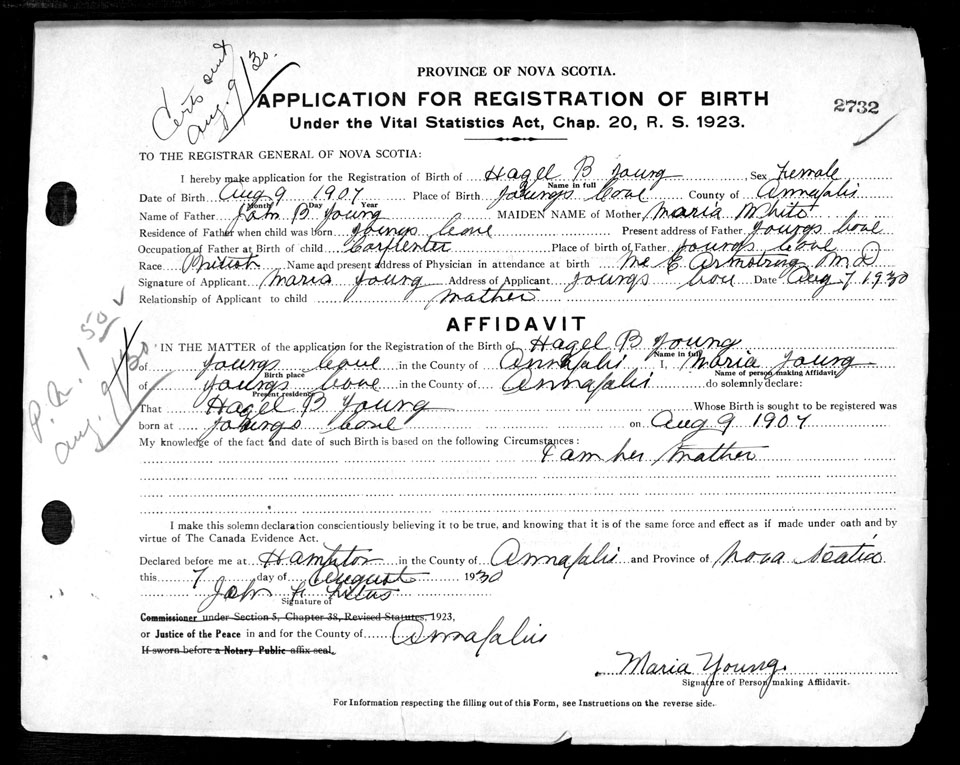 Certs sent
Aug. 9/30.
PROVINCE OF NOVA SCOTIA.
APPLICATION FOR REGISTRATION OF BIRTH
2732
Under the Vital Statistics Act, Chap. 20, R. S. 1923.
TO THE REGISTRAR GENERAL OF NOVA SCOTIA:
I hereby make application for the Registration of Birth of Hagel B Young Sex Female
Name in full
Date of Birth Aug 9 1907 Place of Birth Youngs Cove County of Annapolis
Month Day Year
Name of Father B Young MAIDEN NAME of Mother Maria White
Residence of Father when child was born Youngs Cove Present address of Father Youngs Cove
Occupation of Father at Birth of child Carpenter Place of birth of Father Youngs Cove
Race British Name and present address of Physician in attendance at birth E. Armstrong M D
Signature of Applicant Maria Young Address of Applicant Youngs Cove Date Aug 7 1930
Relationship of Applicant to child Mother
P. N. 1.50
Aug. 9/30
AFFIDAVIT
IN THE MATTER of the application for the Registration of the Birth of Hagel B Young
Name in full
of Youngs Cove in the County of Annapolis I, Maria Young
Birth place Name of person making Affidavit
of Youngs Cove in the County of Annapolis do solemnly declare:
Present residence
That Hagel B Young Whose Birth is sought to be registered was
born at Youngs Cove on Aug 9 1907
My knowledge of the fact and date of such Birth is based on the following Circumstances:
I am her Mother
I make this solemn declaration conscientiously believing it to be true, and knowing that it is of the same force and effect as if made under oath and by
virtue of The Canada Evidence Act.
Declared before me at Hampton in the County of Annapolis and Province of Nova Scotia
this 7 day of August 1930
John
Signature of
Commissioner under Section 5, Chapter 38, Revised Statutes, 1923,
or Justice of the Peace in and for the County of Annapolis
If sworn before a Notary Public affix seal.
Maria Young.
Signature of Person making Affidavit.
For Information respecting the filling out of this Form, see Instructions on the reverse side.